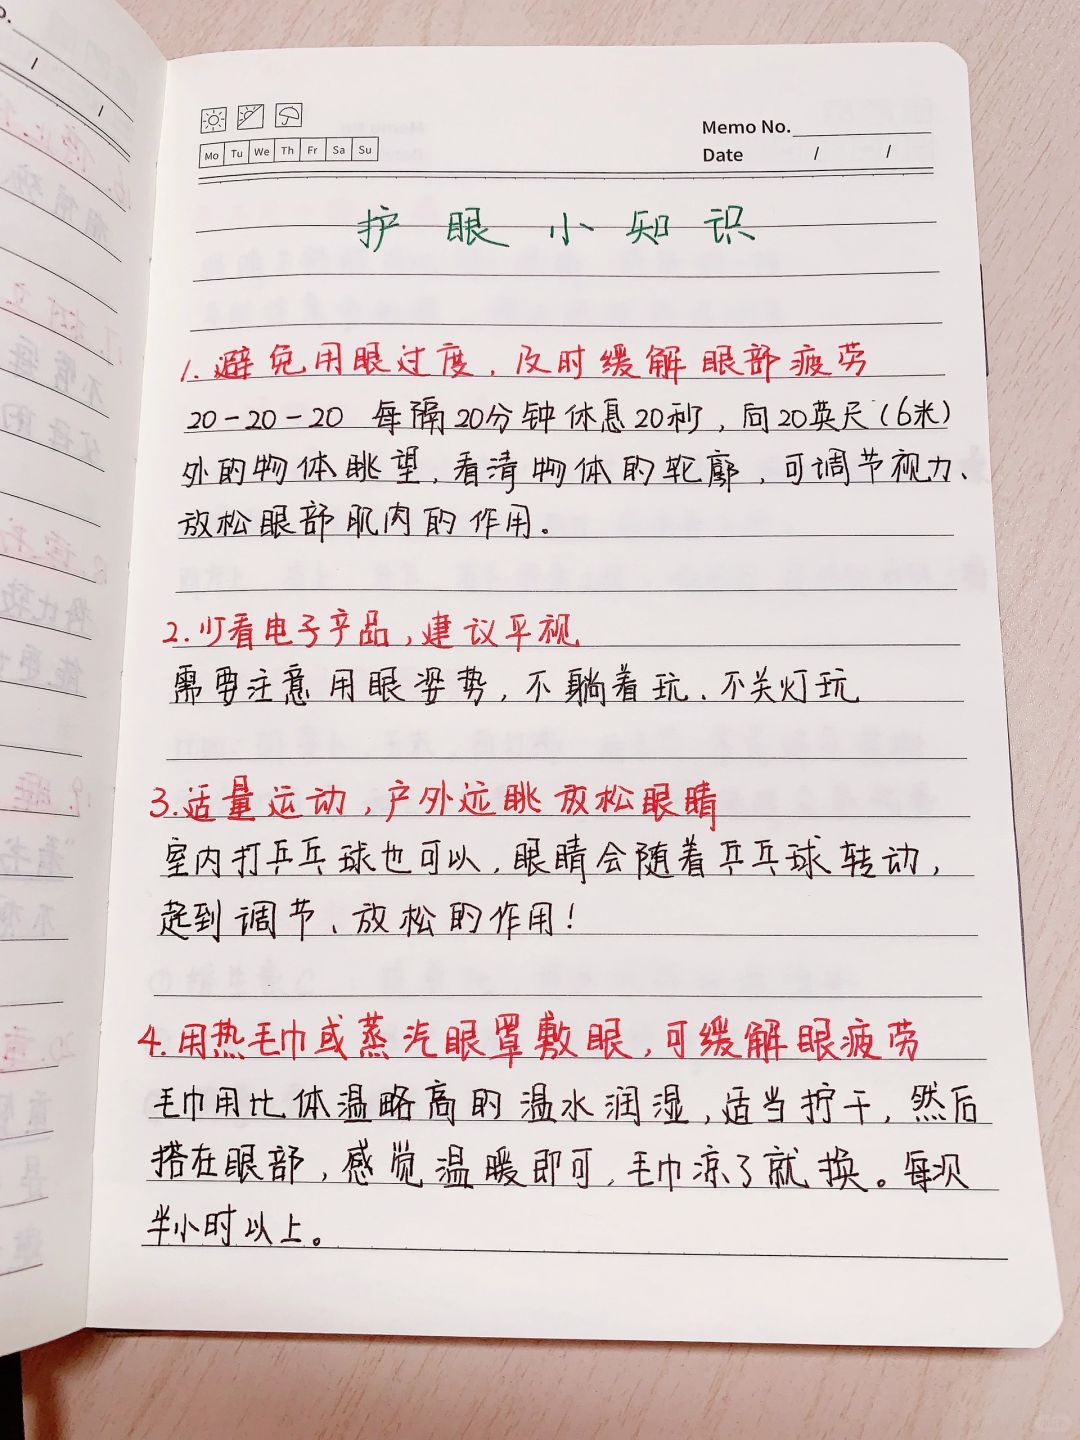 Mo Tu We Th Fr Sa Su
Memo No.
Date / /
护眼小知识
1.避免用眼过度，及时缓解眼部疲劳
20-20-20 每隔20分钟休息20秒，向20英尺(6米)
外的物体眺望，看清物体的轮廓，可调节视力、
放松眼部肌肉的作用。
2.少看电子产品，建议平视
需要注意用眼姿势，不躺着玩、不关灯玩
3.适量运动，户外远眺放松眼睛
室内打乒乓球也可以，眼睛会随着乒乓球转动，
起到调节、放松的作用！
4.用热毛巾或蒸汽眼罩敷眼，可缓解眼疲劳
毛巾用比体温略高的温水润湿，适当拧干，然后
搭在眼部，感觉温暖即可，毛巾凉了就换。每次
半小时以上。